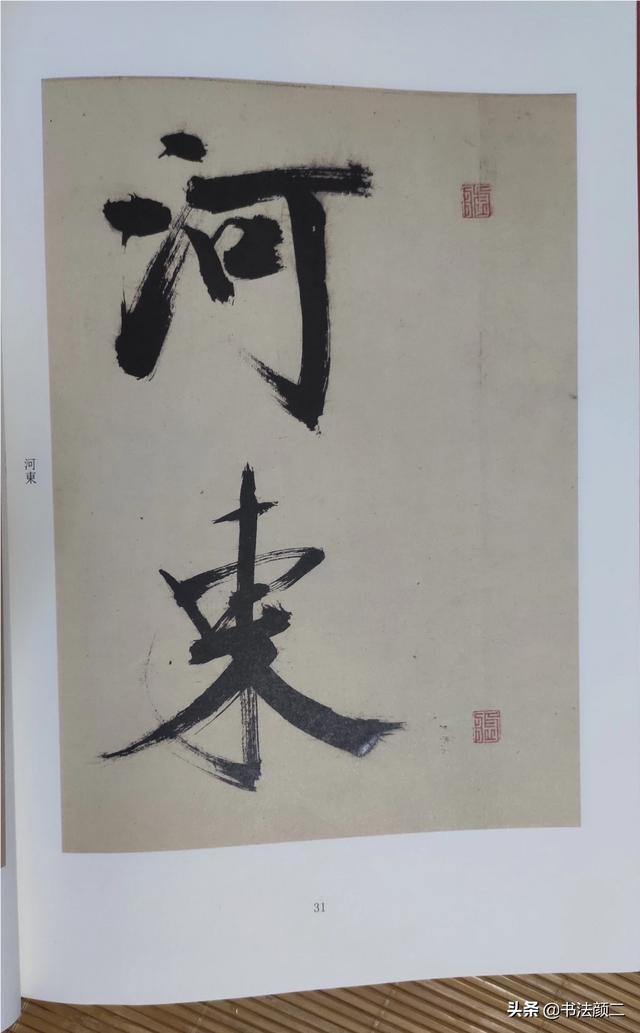 河東
河東
31
头条 @书法颜二